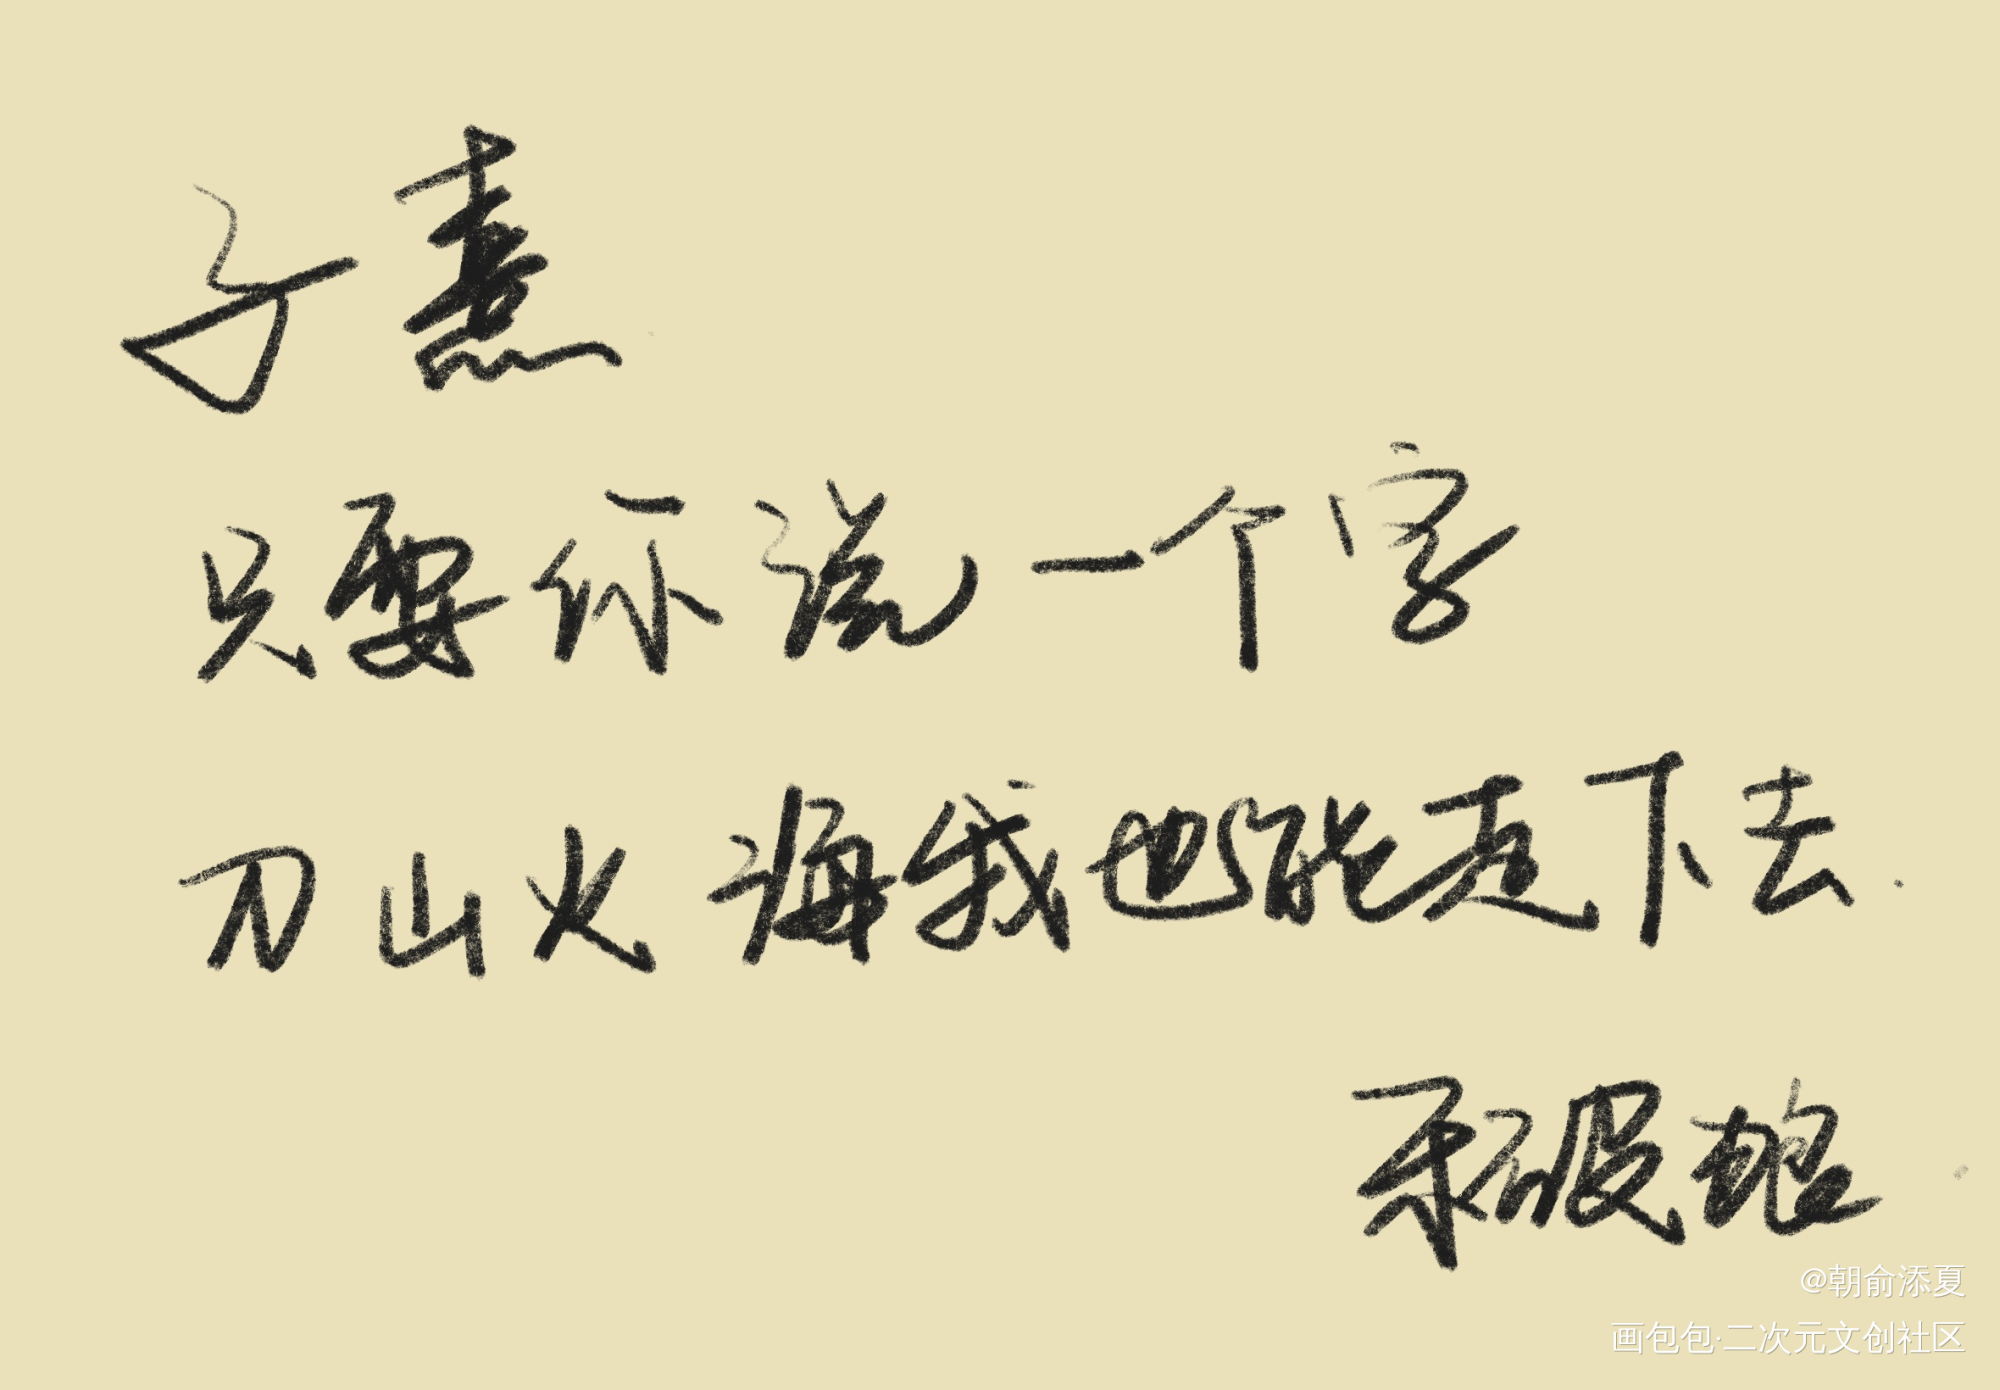 子熹
只要你说一个字
刀山火海我也能走下去.
杀破狼
@朝俞添夏
画包包·二次元文创社区